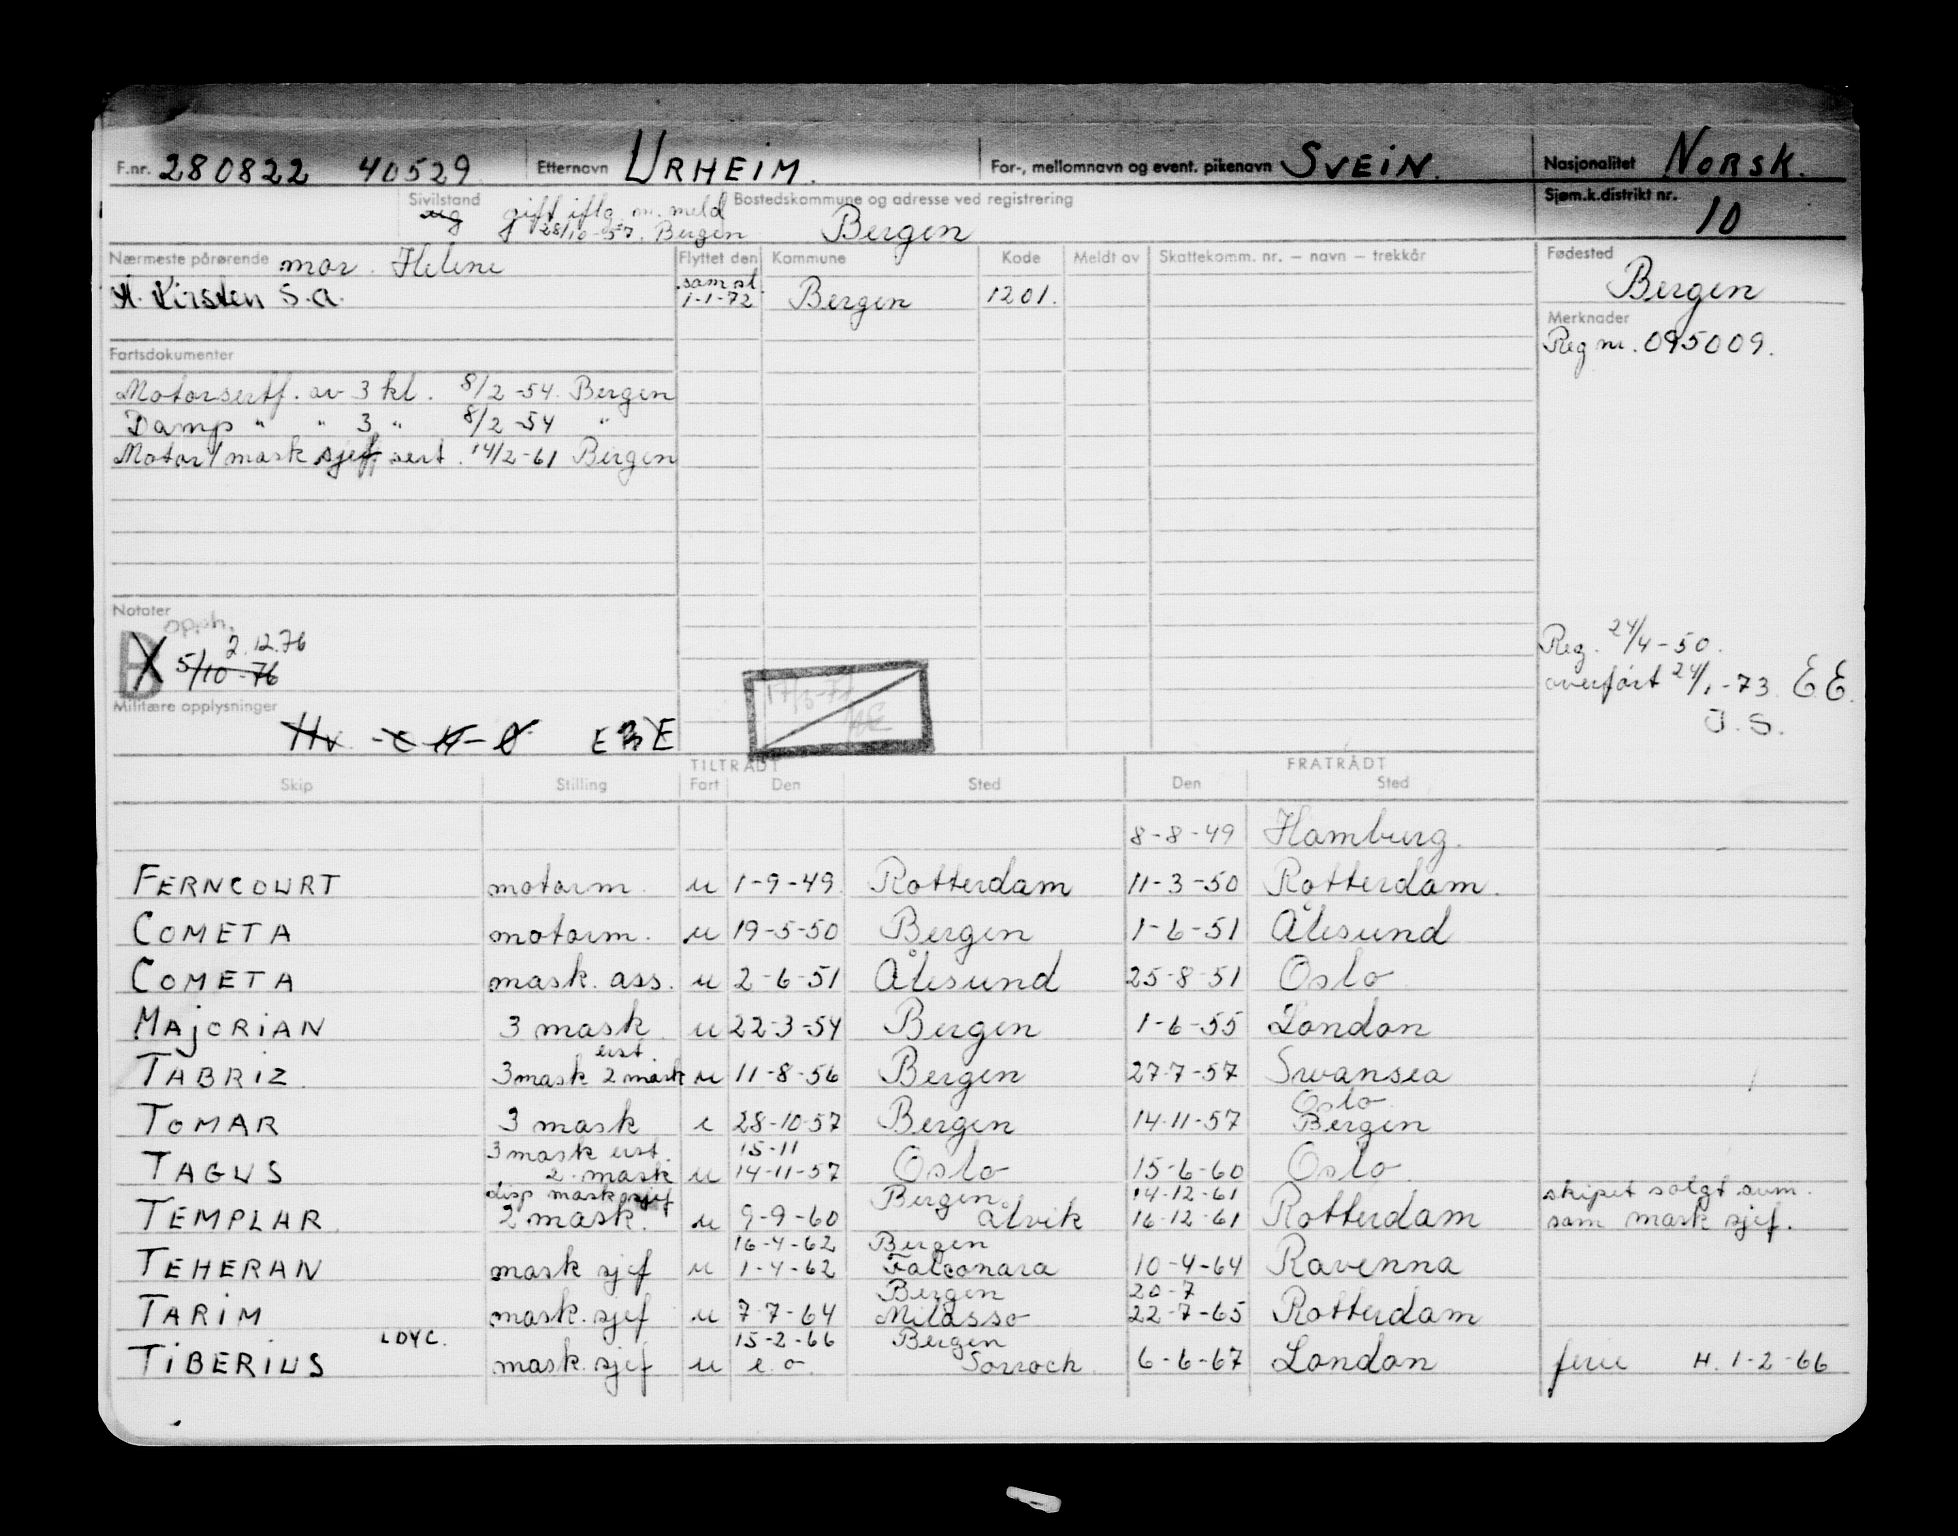 F.nr. 280822 40529 Etternavn URHEIM. For-, mellomnavn og event. pikenavn SVEIN. Nasjonalitet NORSK.
Sivilstand ug gift iflg. m. meld 28/10-57. Bergen Bostedskommune og adresse ved registrering Bergen Sjøm.k.distrikt nr. 10
Nærmeste pårørende mor. Helene Flyttet den Kommune Kode Meldt av Skattekomm. nr. – navn – trekkår Fødested
H. Kirsten S.a. sam st. 1-1-72 Bergen 1201. Bergen
Merknader
Reg nr. 095009.
Fartsdokumenter
Motorsertf. av 3 kl. 8/2-54. Bergen
Damp " " 3 " 8/2-54 "
Motor/mask sjef sert. 14/2-61 Bergen
Notater
opph.
B X 2.12.76
5/10-76
Reg. 24/4-50.
overført 24/1-73. E.E.
J.S.
Militære opplysninger
Hv
TILTRÅDT FRATRÅDT
Skip Stilling Fart Den Sted Den Sted
8-8-49 Hamburg.
FERNCOURT motorm. u 1-9-49. Rotterdam 11-3-50 Rotterdam.
COMETA motorm. u 19-5-50 Bergen 1-6-51 Ålesund
COMETA mask. ass. u 2-6-51 Ålesund 25-8-51 Oslo
MAJORIAN 3 mask u 22-3-54 Bergen 1-6-55 London
erst.
TABRIZ 3 mask 2 mask u 11-8-56 Bergen 27-7-57 Swansea
Oslo
TOMAR 3 mask e 28-10-57 Bergen 14-11-57 Bergen
3 mask erst. 15-11
TAGUS 2. mask u 14-11-57 Oslo 15-6-60 Oslo
disp mask sjef Bergen 14-12-61 skipet solgt avm.
TEMPLAR 2 mask. u 9-9-60 Ålvik 16-12-61 Rotterdam som mask sjef.
16-4-62 Bergen
TEHERAN mask sjef u 1-4-62 Falconara 10-4-64 Ravenna
Bergen 20-7
TARIM mask. sjef u 7-7-64 Milasso 22-7-65 Rotterdam
LDYC. 15-2-66 Bergen
TIBERIUS mask. sjef u e.o. Sorroch 6-6-67 London ferie H. 1-2-66